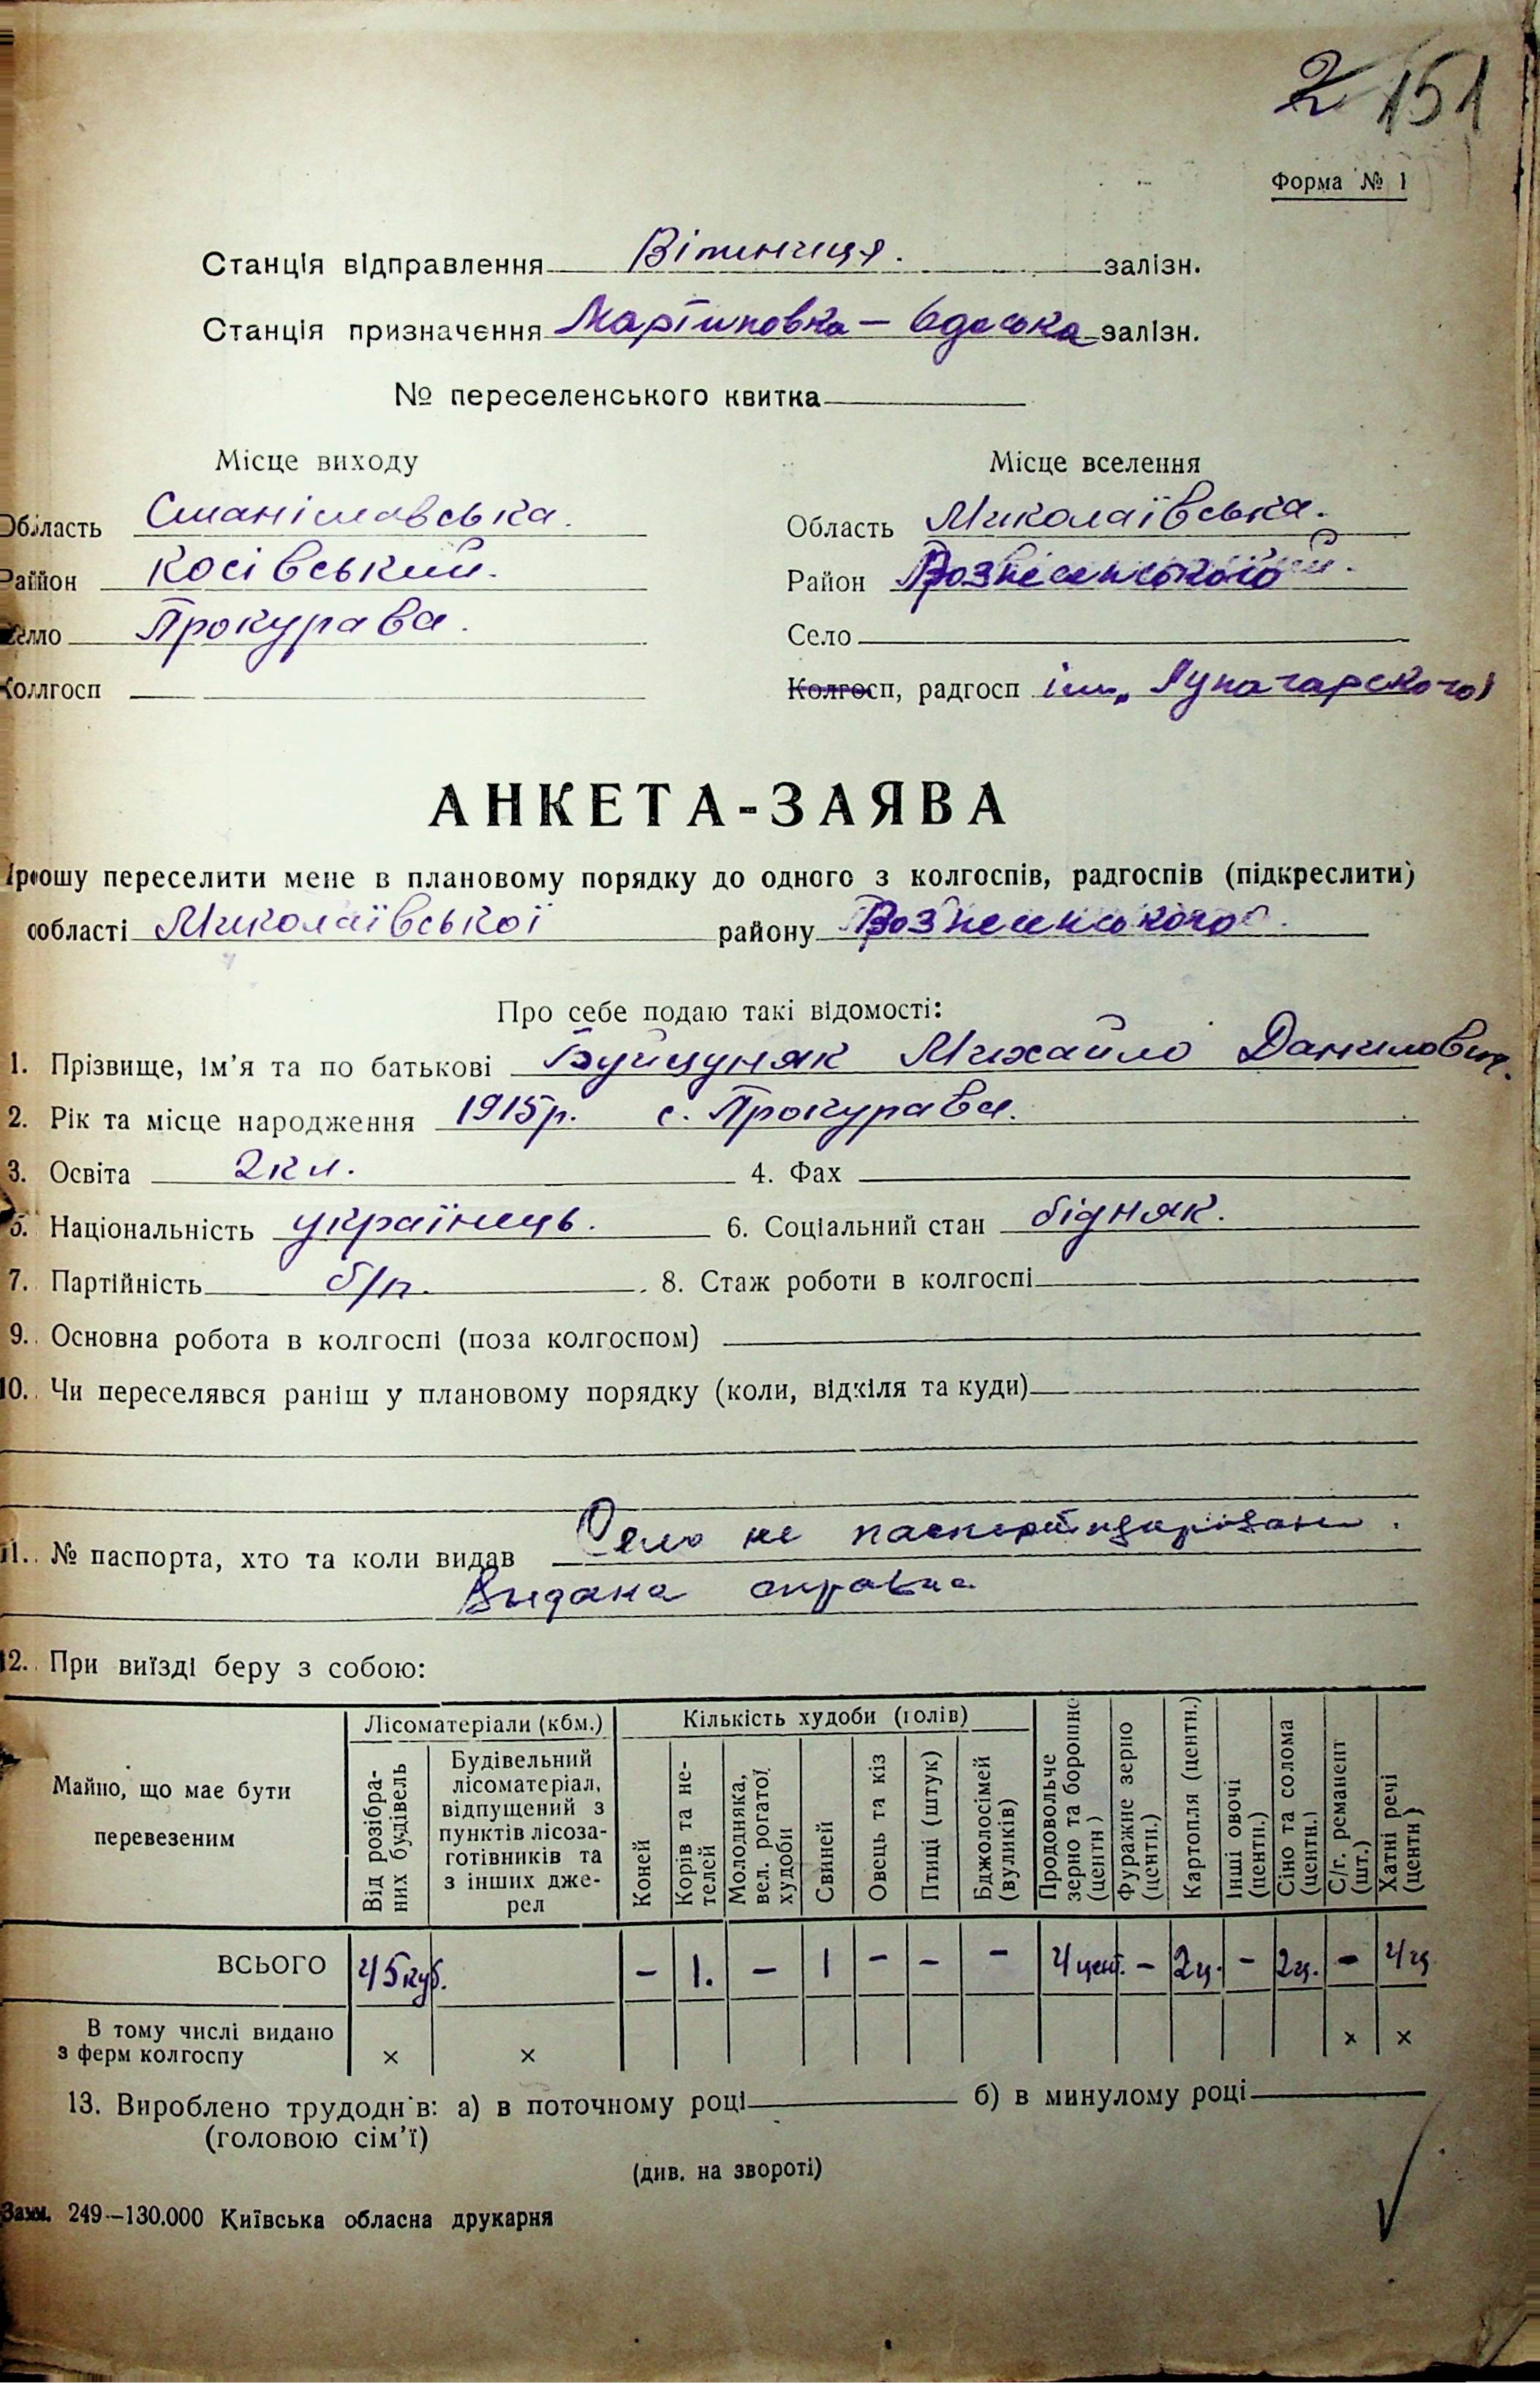 2 151
Форма № 1
Станція відправлення Вітниця. залізн.
Станція призначення Мартиновка - Одеська залізн.
№ переселенського квитка
Місце виходу Місце вселення
Область Станіславська. Область Миколаївська.
Район Косівський. Район Вознесенського
Село Прокурава. Село
Колгосп Колгосп, радгосп ім. Луначарского
АНКЕТА-ЗАЯВА
Прошу переселити мене в плановому порядку до одного з колгоспів, радгоспів (підкреслити)
області Миколаївської району Вознесенського.
Про себе подаю такі відомості:
1. Прізвище, ім’я та по батькові Буйцуняк Михайло Данилович.
2. Рік та місце народження 1915р. с. Прокурава.
3. Освіта 2 кл. 4. Фах
5. Національність українець. 6. Соціальний стан бідняк.
7. Партійність б/п. 8. Стаж роботи в колгоспі
9. Основна робота в колгоспі (поза колгоспом)
10. Чи переселявся раніш у плановому порядку (коли, відкіля та куди)
11. № паспорта, хто та коли видав Село не
Выдана справка
12. При виїзді беру з собою:
Майно, що має бути перевезеним
Лісоматеріали (кбм.)
Від розібраних будівель
Будівельний лісоматеріал, відпущений з пунктів лісозаготівників та з інших джерел
Кількість худоби (голів)
Коней
Корів та нетелей
Молодняка, вел. рогатої худоби
Свиней
Овець та кіз
Птиці (штук)
Бджолосімей (вуликів)
Продовольче зерно та борошно (центн)
Фуражне зерно (центн.)
Картопля (центн.)
Інші овочі (центн.)
Сіно та солома (центн.)
С/г. реманент (шт.)
Хатні речі (центн)
ВСЬОГО 45 куб. - 1. - 1 - - - 4 цент. - 2ц. - 2ц. - 4ц
В тому числі видано
з ферм колгоспу × × × ×
13. Вироблено трудоднів: а) в поточному році б) в минулому році
(головою сім’ї)
(див. на звороті)
Зам. 249—130.000 Київська обласна друкарня